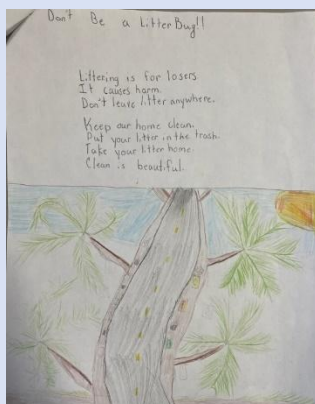 Don't Be a Litter Bug!!
Littering is for losers
It causes harm.
Don't leave litter anywhere.
Keep our home clean.
Put your litter in the trash.
Take your litter home.
Clean is beautiful.